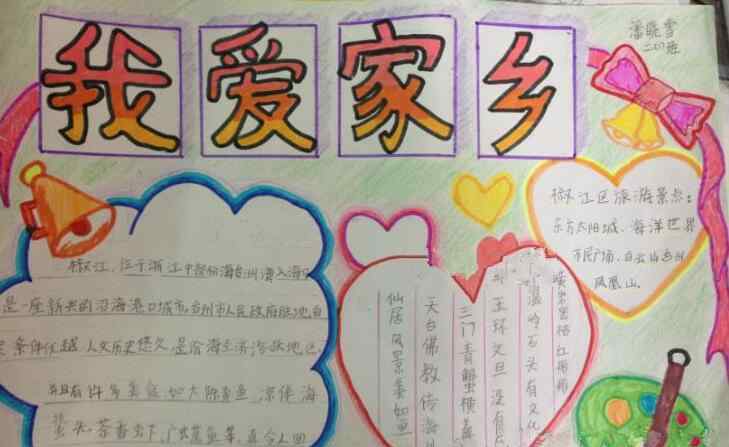 我爱家乡
潘晓雪
二07班
椒江区旅游景点:
东方太阳城、海洋世界
市民广场、白云山
凤凰山。
椒江,位于浙江中部沿海台州湾入海口
是一座新兴的沿海港口城市,台州市人民政府驻地,自
条件优越,人文历史悠久,是沿海经济活跃地区,
并且有许多美食,如大陈黄鱼、凉伴海
蜇头、茶香虾、
黄岩蜜桔红彤彤
温岭石头有文化
玉环文旦没有
三门青蟹横着
天台佛教传海
仙居风景美如画